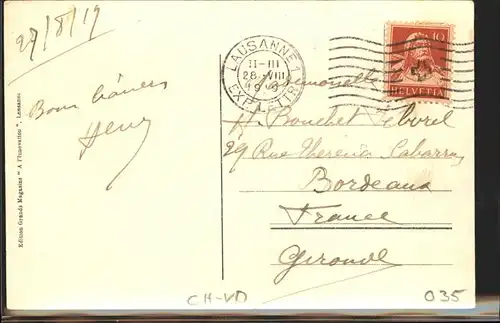 27/8/19
Bons baisers
Henry
Edition Grands Magasins "A l'Innovation", Lausanne
LAUSANNE 1
II-III
28 VIII
EXP. LETTR.
10
HELVETIA
Mademoiselle
H. Bouchet
29 Rue Therésia Cabarrus
Bordeaux
France
Gironde
CH-VD
035